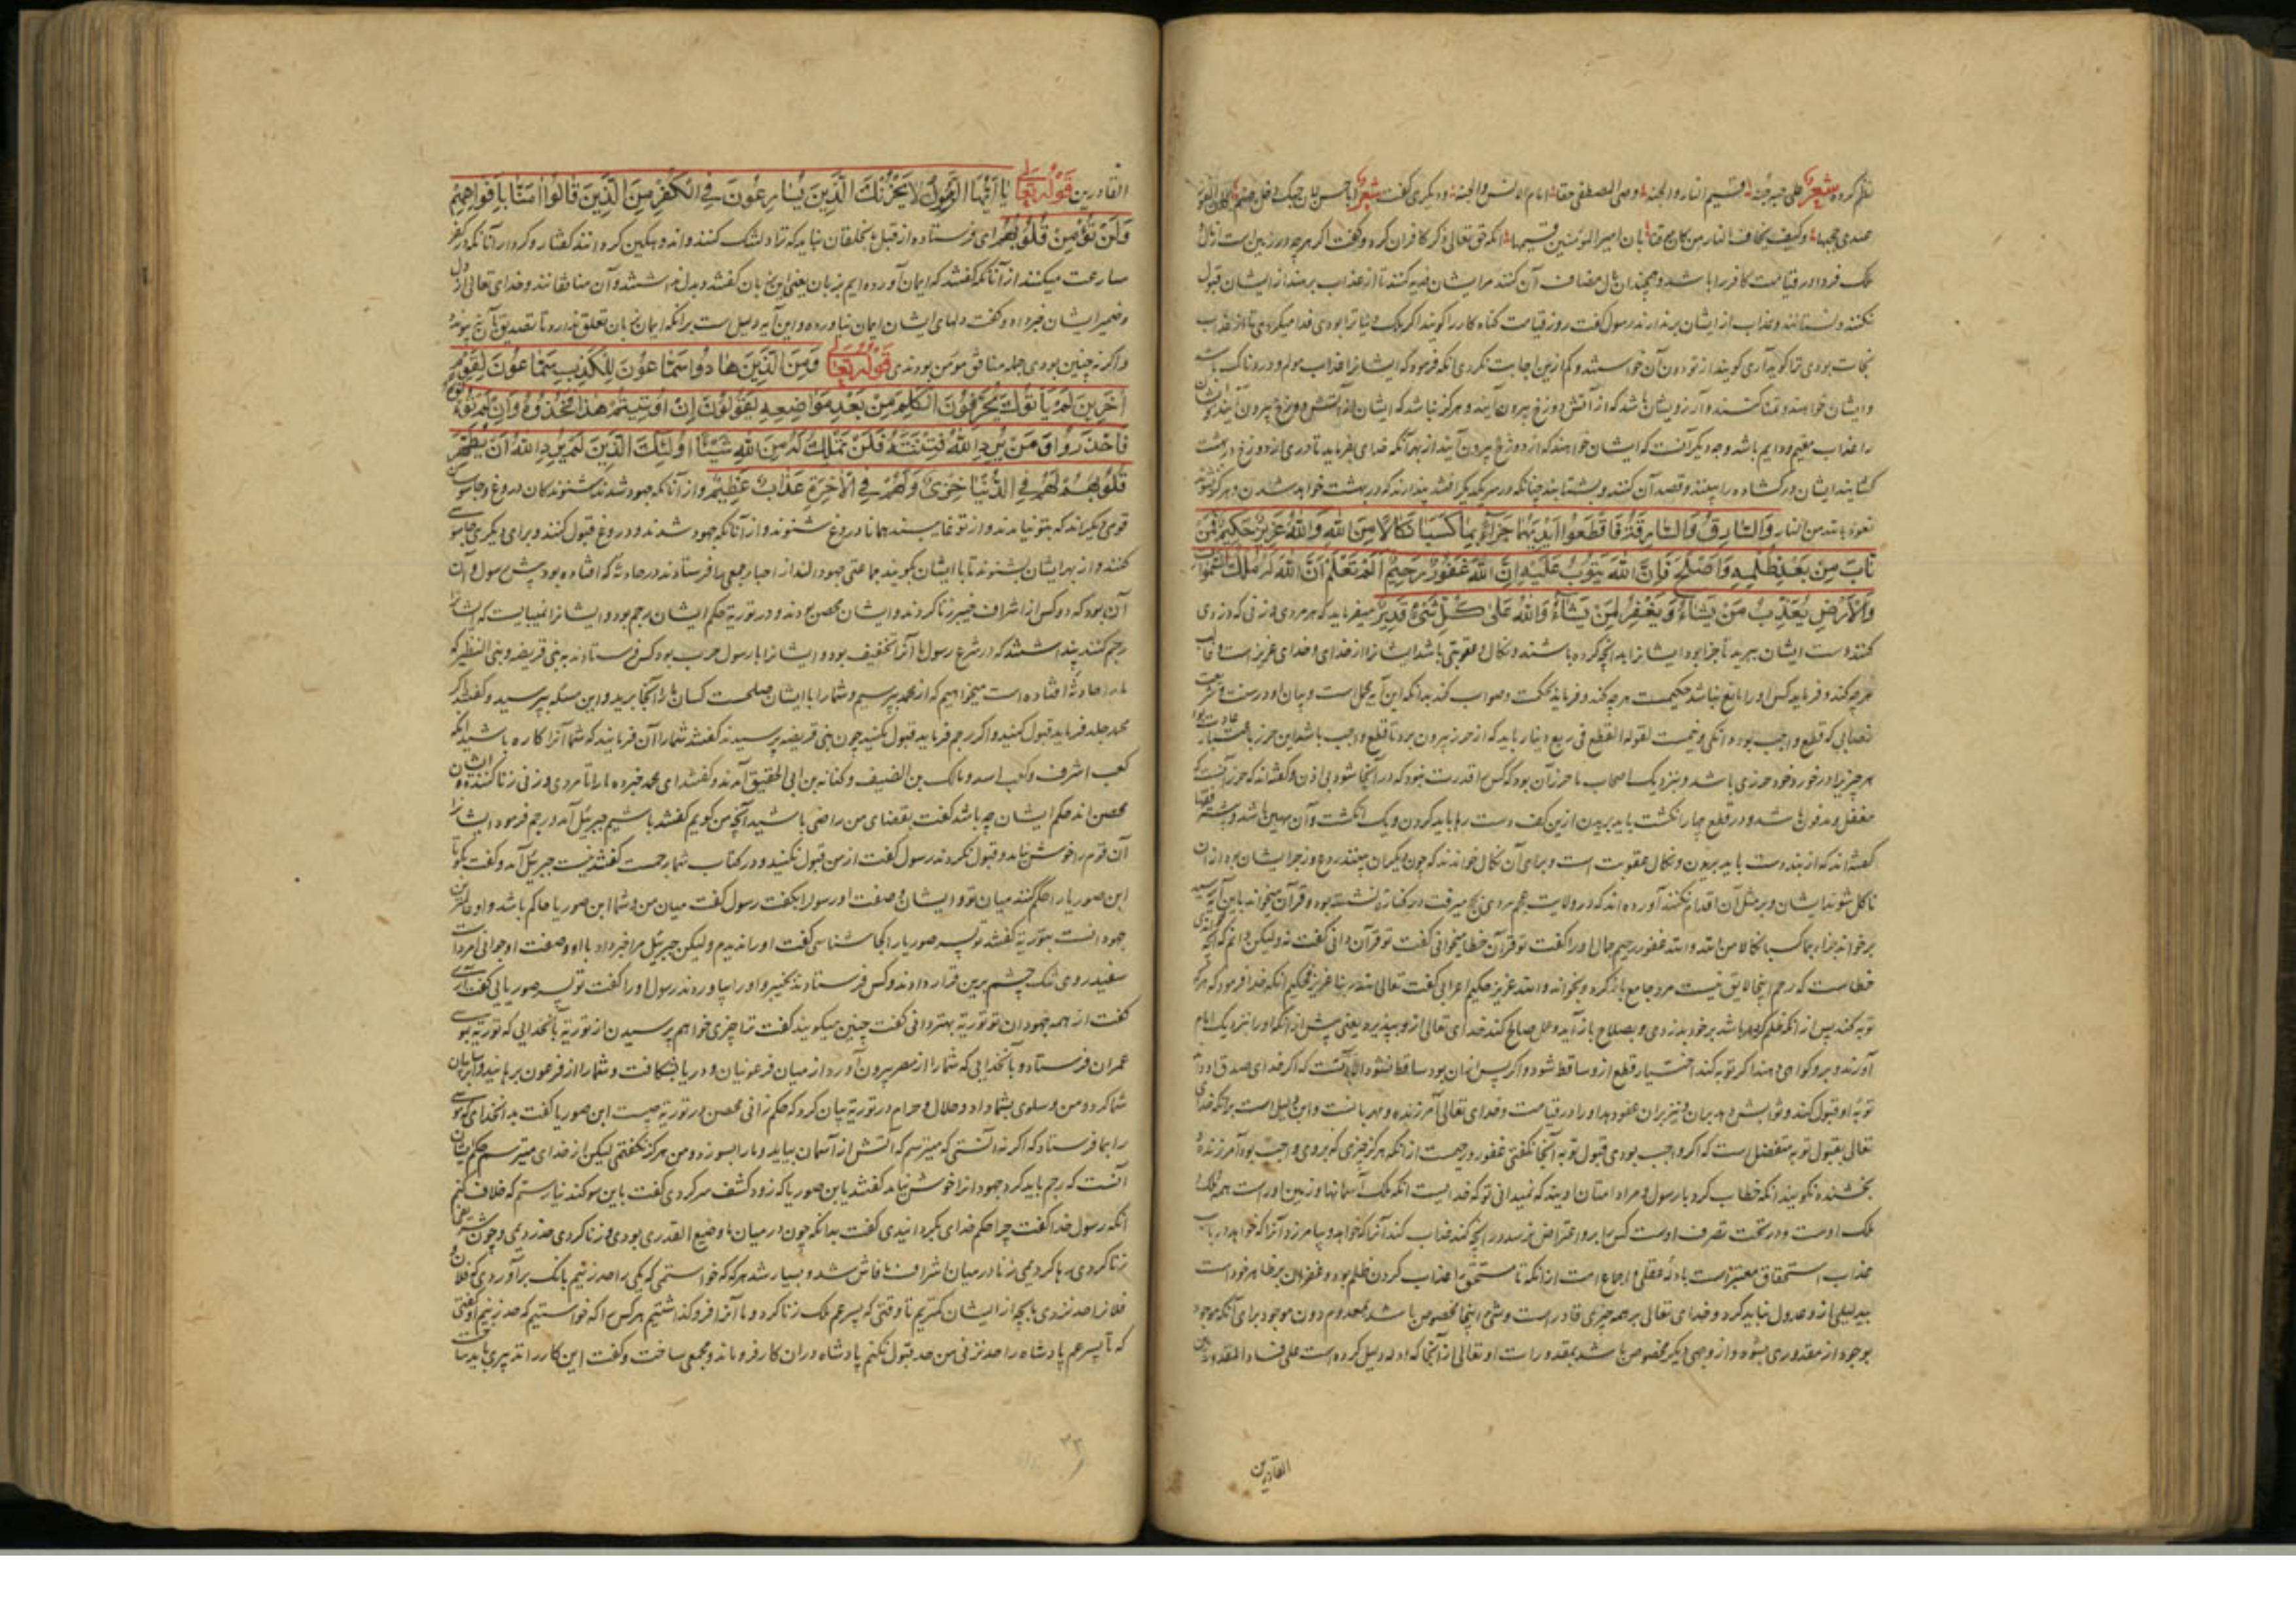 نظم کرده شعر علی حبه جنه قسیم النار والجنه وصی المصطفی حقا امام الانس والجنه و دیکری کفت شعر
وکیف یخاف النار من کان موقنا بان امیر المؤمنین قسیمها انکه حق تعالی ذکر کافران کرد و کفت اکر هر چه در زمین است از مال
ملک فردا در قیامت کافر را باشد و همچندان مال مضاف آن کنند مر ایشان فدیه کنند تا از عذاب برهند از ایشان قبول
نکنند و نستانند و عذاب از ایشان برندارند رسول کفت روز قیامت کناه کار را کویند اکر ملک دنیا ترا بودی فدا میکردی تا از عذاب
نجات بودی ترا کوید آری کویند از تو دون آن خواستند و کم ازین اجابت نکردی انکه فرمود که ایشانرا عذاب مولم و دردناک باشد
و ایشان خواهند و تمنا کنند و آرزویشان باشد که از آتش دوزخ بیرون آیند و هرکز نباشد که ایشان از آتش دوزخ بیرون آیند
را عذاب مقیم و دایم باشد وجه دیکر آنست که ایشان خواهند که از دوزخ بیرون آیند از بهر آنکه خدای بفرماید تا دری از دوزخ در بهشت
کشایند ایشان در کشاده را بینند و قصد آن کنند و بشتابند چنانکه در یکدیکر افتند پندارند که در بهشت خواهند شدن و هرکز نشوند
نعوذ بالله من النار وَالسَّارِقُ وَالسَّارِقَةُ فَاقْطَعُوا أَيْدِيَهُمَا جَزَاءً بِمَا كَسَبَا نَكَالًا مِنَ اللهِ وَاللهُ عَزِيزٌ حَكِيمٌ فَمَنْ
تَابَ مِنْ بَعْدِ ظُلْمِهِ وَأَصْلَحَ فَإِنَّ اللهَ يَتُوبُ عَلَيْهِ إِنَّ اللهَ غَفُورٌ رَحِيمٌ أَلَمْ تَعْلَمْ أَنَّ اللهَ لَهُ مُلْكُ السَّمٰوَاتِ
وَالْأَرْضِ يُعَذِّبُ مَنْ يَشَاءُ وَيَغْفِرُ لِمَنْ يَشَاءُ وَاللهُ عَلَى كُلِّ شَيْءٍ قَدِيرٌ میفرماید که هر مردی و زنی که دزدی
کنند دست ایشان ببرید تا جزا بود ایشانرا بدانچه کرده باشند و نکال و عقوبتی باشد ایشانرا از خدای و خدای عزیز است و غالب
هر چه کند و فرماید کس او را مانع نباشد حکیمست هر چه کند و فرماید بحکمت و صواب کند بدانکه این آیه مجمل است و بیان او در سنت
نصابی که قطع واجب بود دانکی و نیمست لقوله القطع فی ربع دینار باید که از حرز بیرون برد تا قطع واجب باشد این حرز باعتبار عادت بود
هر چیزیرا در خورد خود حرزی باشد و بنزدیک اصحاب ما حرز آن بود که کس را قدرت نبود که در آنجا شود بی اذن و کفته‌اند که حرز آنست که
مقفل و مدفون باشد و در قطع چهار انکشت باید بریدن از بن کف دست رها باید کردن و یک انکشت و آن مهین باشد و بیشتر فقها
کفته‌اند که از بند دست باید بریدن و نکال عقوبت است و برای آن نکال خوانند که چون دیکران بینند ردع و زجر ایشان بود از آن
ناکل شوند ایشان و بر مثل آن اقدام نکنند آورده‌اند که در ولایت عجم مردی میرفت در کناره نشسته بود و قرآن میخواند باین آیه رسید
برخواند جزاء بما کسبا نکالا من الله والله غفور رحیم حالی او را کفت تو قرآن خطا میخوانی کفت تو قرآن دانی کفت نه ولیکن دانم که آنچه
خطاست که رحم اینجا لایق نیست مرد جامع باز کرد و بخواند والله عزیز حکیم اعرابی کفت
توبه کند پس از آنکه ظلم کرده باشد بر خود بدزدی و بصلاح باز آید و عمل صالح کند خدای تعالی ازو بپذیرد یعنی پیش از آنکه او را بنزدیک امام
آورند و برو کواهی دهند اکر توبه کند اختیار قطع ازو ساقط شود و اکر پس از آن بود ساقط نشود
توبه او قبول کند و ثوابش دهد بران و نیز بران عفو دهد او را در قیامت و خدای تعالی آمرزنده و مهربانست و این دلیل است برانکه خدای
تعالی بقبول توبه متفضل است که اکر واجب بودی قبول توبه آنجا نکفتی غفور رحیمست از انکه هرکز چیزی که بروی واجب بود آمرزنده
بخشنده نکویند انکه خطاب کرد با رسول و مراد امتان اویند که نمیدانی تو که خدایست انکه ملک آسمانها و زمین اوراست همه ملک
ملک اوست و در تحت تصرف اوست کس را برو اعتراض نرسد در آنچه کند عذاب کند آنرا که خواهد و بیامرزد آنرا که خواهد در باب
عذاب استحقاق معتبر است بادله عقلی و اجماع امت از انکه نا مستحق را عذاب کردن ظلم بود و غفران بر ظاهر خود است
بی دلیلی ازو عدول نباید کرد و خدای تعالی بر همه چیزی قادر است و شیء اینجا مخصوص باشد بمعدوم دون موجود برای آنکه موجود
بوجود از مقدوری بشود و از وجهی دیکر مخصوص باشد بمقدورات او تعالی از آنجا که ادله دلیل کرده است علی فساد المقدور بین
القادرین
القادرین قوله تعالی يَا أَيُّهَا الرَّسُولُ لَا يَحْزُنْكَ الَّذِينَ يُسَارِعُونَ فِي الْكُفْرِ مِنَ الَّذِينَ قَالُوا آمَنَّا بِأَفْوَاهِهِمْ
وَلَمْ تُؤْمِنْ قُلُوبُهُمْ ای فرستاده از قبل ما بخلقان نباید که ترا دلتنک کنند و اندوهکین کردانند کفتار و کردار آنانکه در کفر
مسارعت میکنند از آنانکه کفتند که ایمان آورده‌ایم بزبان یعنی این بزبان کفتند و بدل نداشتند و آن منافقانند و خدای تعالی از دل
و ضمیر ایشان خبر داد و کفت دلهای ایشان ایمان نیاورده و این آیه دلیل است برانکه ایمان بزبان تعلق ندارد تا تصدیق با آن نبود
و اکر نه چنین بودی جمله منافق مؤمن بودندی قوله تعالی وَمِنَ الَّذِينَ هَادُوا سَمَّاعُونَ لِلْكَذِبِ سَمَّاعُونَ لِقَوْمٍ
آخَرِينَ لَمْ يَأْتُوكَ يُحَرِّفُونَ الْكَلِمَ مِنْ بَعْدِ مَوَاضِعِهِ يَقُولُونَ إِنْ أُوتِيتُمْ هٰذَا فَخُذُوهُ وَإِنْ لَمْ تُؤْتَوْهُ
فَاحْذَرُوا وَمَنْ يُرِدِ اللهُ فِتْنَتَهُ فَلَنْ تَمْلِكَ لَهُ مِنَ اللهِ شَيْئًا أُولٰئِكَ الَّذِينَ لَمْ يُرِدِ اللهُ أَنْ يُطَهِّرَ
قُلُوبَهُمْ لَهُمْ فِي الدُّنْيَا خِزْيٌ وَلَهُمْ فِي الْآخِرَةِ عَذَابٌ عَظِيمٌ و از آنانکه جهود شدند شنوندکان دروغ و جاسوسان
قوم دیکراند که بتو نیامدند و از تو غایبند همانا دروغ شنوند و از آنانکه جهود شدند و دروغ قبول کنند و برای دیکری جاسوسی
کنند و از بهر ایشان بشنوند تا با ایشان بکویند جماعتی جهودانند از احبار جمعی را فرستادند در حادثه که افتاده بود پیش رسول و آن
آن بود که دو کس از اشراف خیبر زنا کردند و ایشان محصن بودند و در توریة حکم ایشان رجم بود و ایشانرا نمیبایست که ایشانرا
رجم کنند پنداشتند که در شرع رسول ما آنرا تخفیف بود و ایشانرا با رسول حرب بود کس فرستادند به بنی قریضه و بنی النظیر که
ما را حادثه افتاده است میخواهیم که از محمد بپرسیم و شما را با ایشان صلحست کسان ما را آنجا برید و این مسئله بپرسید و کفتند اکر
محمد جلد فرماید قبول کنید و اکر رجم فرماید قبول نکنید چون بنی قریضه پرسیدند کفتند شما را آن فرمایند که شما آنرا کاره باشید انکه
کعب اشرف و کعب اسد و مالک بن الضیف و کنانه بن ابی الحقیق آمدند و کفتند ای محمد خبر ده ما را تا مردی و زنی زنا کنند و ایشان
محصن‌اند حکم ایشان چه باشد کفت بقضای من راضی باشید آنچه من کویم کفتند باشیم جبرئیل آمد و رجم فرمود ایشانرا
آن قوم را خوش نیامد و قبول نکردند رسول کفت از من قبول نکنید و در کتاب شما رجمست کفتند نیست جبرئیل آمد و کفت بکو تا
ابن صوریا را حکم کنند میان تو و ایشان و صفت او رسول را بکفت رسول کفت میان من و شما ابن صوریا حاکم باشد و او عالمترین
جهودانست بتوریة کفتند تو پسر صوریا را کجا شناسی کفت او را ندیدم ولیکن جبرئیل مرا خبر داد با او و صفت او جوانی امرد است
سفید روی یک چشم برین قرار دادند و کس فرستادند بخیبر و او را بیاوردند رسول او را کفت تو پسر صوریایی کفت آری
کفت از همه جهودان تو توریة بهتر دانی کفت چنین میکویند کفت ترا چیزی خواهم پرسیدن از توریة بآنخدایی که توریة بموسی
عمران فرستاد و بآنخدایی که شما را از مصر بیرون آورد از میان فرعونیان و دریا بشکافت و شما را از فرعون برهانید و ابر سایبان
شما کرد و من و سلوی بشما داد و حلال و حرام در توریة بیان کرد که حکم زانی محصن در توریة چیست ابن صوریا کفت بدانخدای که موسی
را بما فرستاد که اکر نه آنستی که میترسم که آتش از آسمان بیاید و ما را بسوزد و من هرکز نکفتمی لیکن از خدای میترسم حکم ایشان
آنست که رجم باید کرد جهودانرا خوش نیامد کفتند یا بن صوریا که زود کشف سر کردی کفت باین سوکند نیارستم که خلاف کنم
انکه رسول خدا کفت چرا حکم خدای بکردانیدی کفت بدانکه چون در میان ما وضیع القدری بودی و زنا کردی حد زدیمی و چون شریفی
زنا کردی رها کردیمی زنا در میان اشراف ما فاش شد و بسیار شد هر که که خواستمی که یکی را حد زنیم بانک برآوردی که فلان و
فلانرا حد نزدی ما بچه از ایشان کمتریم تا وقتی که پسر عم ملک زنا کرد و ما آنرا فرو کذاشتیم هر کس را که خواستیم که حد زنیم او کفتی
که تا پسر عم پادشاه را حد نزنی من حد قبول نکنم پادشاه دران کار فرو ماند و مجمعی ساخت و کفت این کار را تدبیری باید ساخت
۲۳